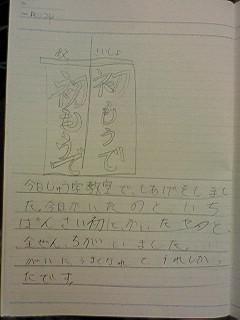 さいしょ
初もうで
初もうで
今日しゅう字教室で、しあげをしまし
た。今日かいたのと、いち
ばんさい初にかいたやつと、
ぜんぜんちがいました。
うれしかっ
たです。